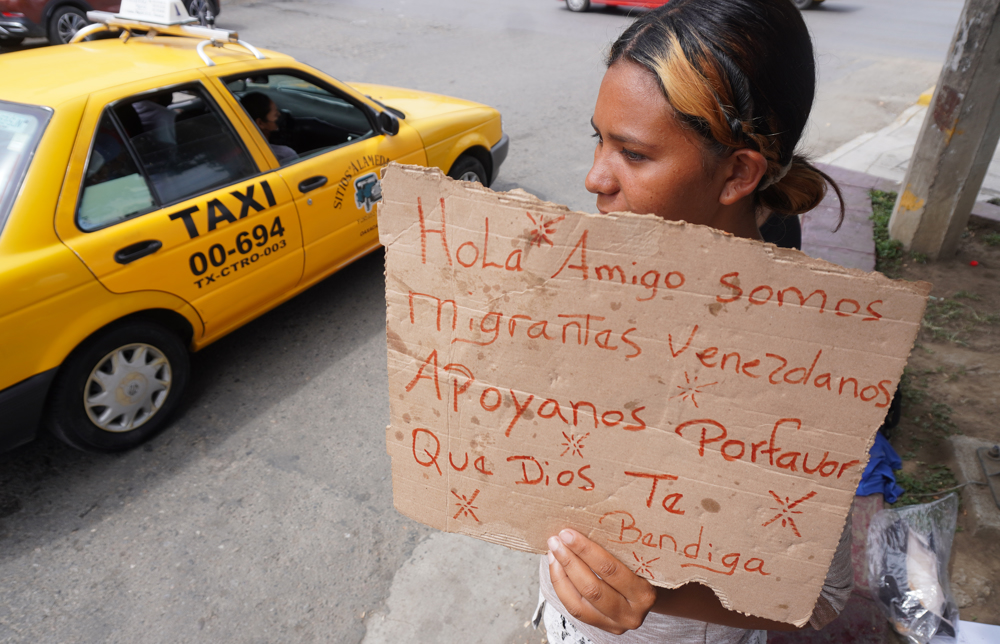 TAXI
00-694
TX-CTRO-003
SITIOS "ALAMEDA
Hola Amigo somos
migrantes Venezolanos
Apoyanos Porfavor
Que Dios Te
Bendiga